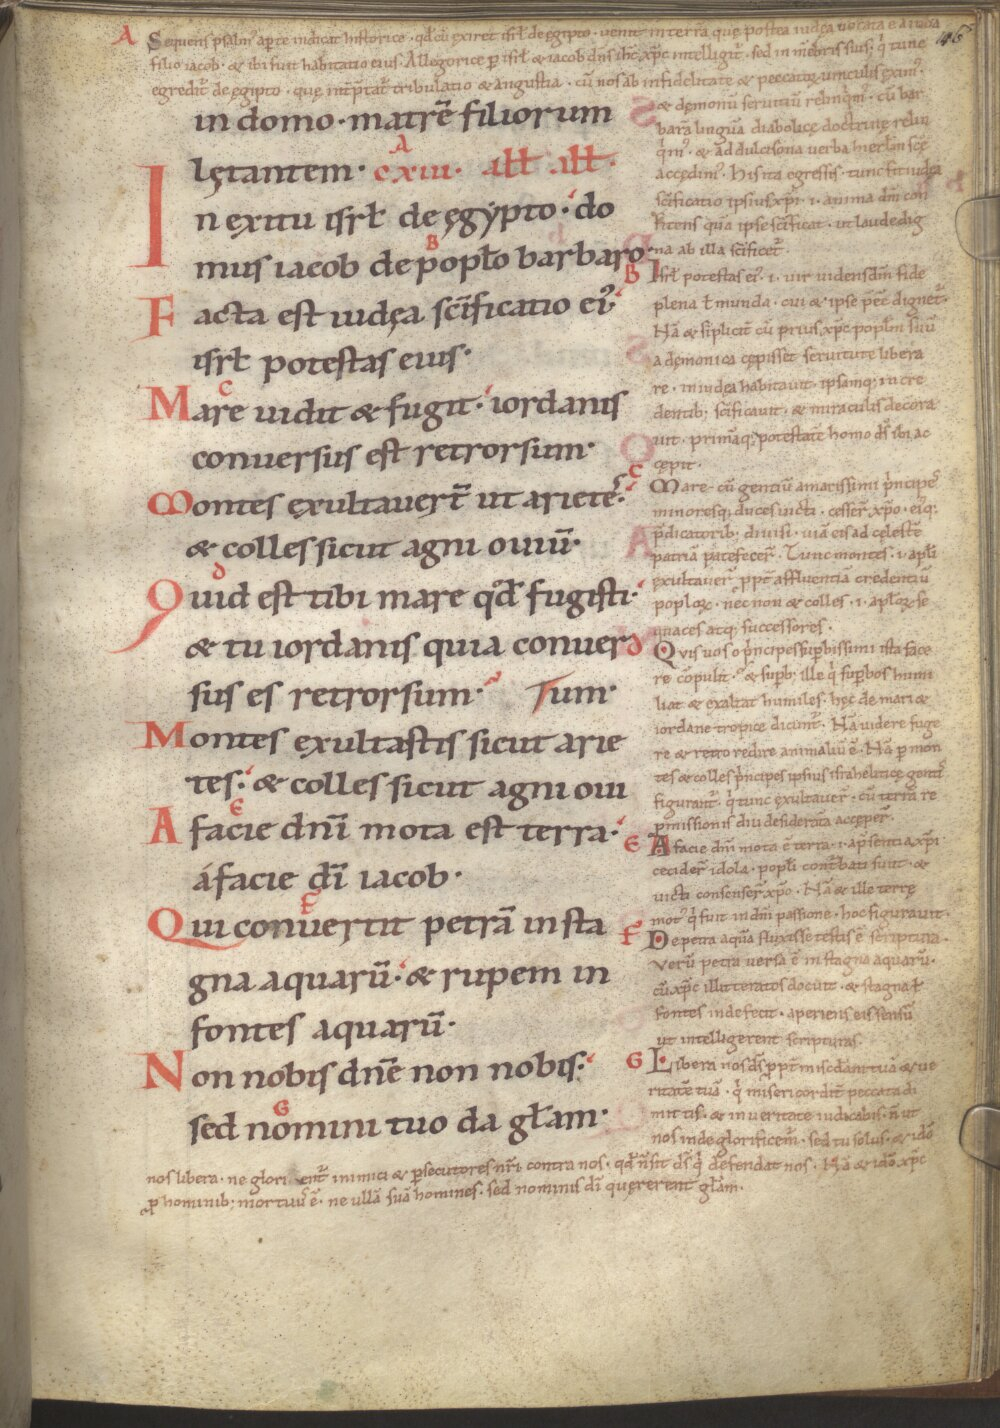 146
A Sequens psalm᷒ aꝑte indicat historice · qđ cū exiret isrł de ęgipto · venit in terrā quę postea iudęa uocata ē
filio iacob · & ibi fuit habitatio eius · Allegorice ꝑ isrł & iacob dn̄s ih̄c xp̄c intelligit᷒ · sed in mēbris suis · q̇ tunc
egredit᷒ de ęgipto · quę int̄ptat᷒ tribulatio & angustia · cū nos ab infidelitate & peccatoꝝ uinculis exim᷒ ·
in domo · matrē filiorum
lętantem · cxiii · ałł ałł ·
A
In exitu isrł de ęgẏpto · do
mus iacob de popło barbaro ·
B
Facta est iudęa sc̄ificatio ei᷒ ·
isrł potestas eius ·
C
Mare uidit & fugit · iordanis
conuersus est retrorsum ·
Montes exultauer̄t ut arietes ·
& colles sicut agni ouiū ·
D
Quid est tibi mare qđ fugisti ·
& tu iordanis quia conuer
sus es retrorsum · Tum ·
Montes exultastis sicut arie
tes · & colles sicut agni oui
E
A facie dn̄i mota est terra ·
á facie dī iacob ·
F
Qui conuertit petrā in sta
gna aquarū · & rupem in
fontes aquarū ·
Non nobis dn̄e non nobis ·
G
sed nomini tuo da głam ·
& demonū seruitiū relinq̇m᷒ · cū bar
bara lingua diabolicę doctrinę relin
q̇m᷒ · & ad dulcisona uerba
accedim᷒ · His ita egressis · tunc fit iudęa
sc̄ificatio ipsius xp̄i · i · anima dn̄i con
fitens quā ipse sc̄ificat · ut laude dig
na ab illa sc̄ificet᷒ ·
B Isrł potestas ei᷒ · i · uir uidens dm̄ fide
plena ł munda · cui & ipse
Nā & simplicit᷒ cū prius xp̄c popłm suū
a demoniaca cępisset seruitute libera
re · in iudęa habitauit · ipsamq; in cre
dentib; sc̄ificauit · & miraculis decora
uit · primāq; potestatē homo ds̄ ibi ac
cępit ·
C Mare · cū gentiū amarissimi pincipes
minoresq; duces uicti · cesser̄ xp̄o · ei᷒q;
pdicatorib; diuisi · uiā eis ad cęlestē
patriā patefecer̄ · Tunc montes · i · apłi
exultauer̄ ppt̄ affluentiā credentiū
popłoꝝ · nec non & colles · i · apłoꝝ se
quaces atq; successores ·
D Quis uos o pincipes suꝑbissimi ista face
re cōpulit · & suꝑb; ille q̇ suꝑbos humi
liat & exaltat humiles · hęc de mari &
iordane tropice dicunt᷒ · Nā uidere fuge
re & retro redire animaliū ē · Nā ꝑ mon
tes & colles pincipes ipsius israheliticę gentis
figurant᷒ · q̇ tunc exultauer̄ · cū terrā re
ꝓmissionis diu desideratā acceper̄ ·
E A facie dn̄i mota ē terra · i · a psentia xp̄i
cecider̄ idola · popłi cont̄bati sunt · &
uicti consenser̄ xp̄o · Nā & ille terrę
mot᷒ q̇ fuit in dn̄i passione · hoc figurauit ·
F De petra aquā fluxisse testis ē scriptura ·
Verū petra uersa ē in stagna aquarū ·
cū xp̄c illitteratos docuit · & stagna ł
fontes inde fecit · aperiens eis sensū
ut intelligerent scripturas ·
G Libera nos ds̄ ꝓpt̄ misc̄dam tuā & ue
ritatē tuā · q̇ misericordit᷒ peccata di
mittis · & in ueritate iudicabis · n̄ ut
nos inde glorificem᷒ · sed tu solus · & ido
nos libera · ne glori ent᷒ inimici & ꝑsecutores nr̄i contra nos · qđ n̄ sit ds̄ q̇ defendat nos · Nā & ido xp̄c
ꝓ hominib; mortuus ē · ne ullā suā homines · sed nominis dī quęrerent głam ·